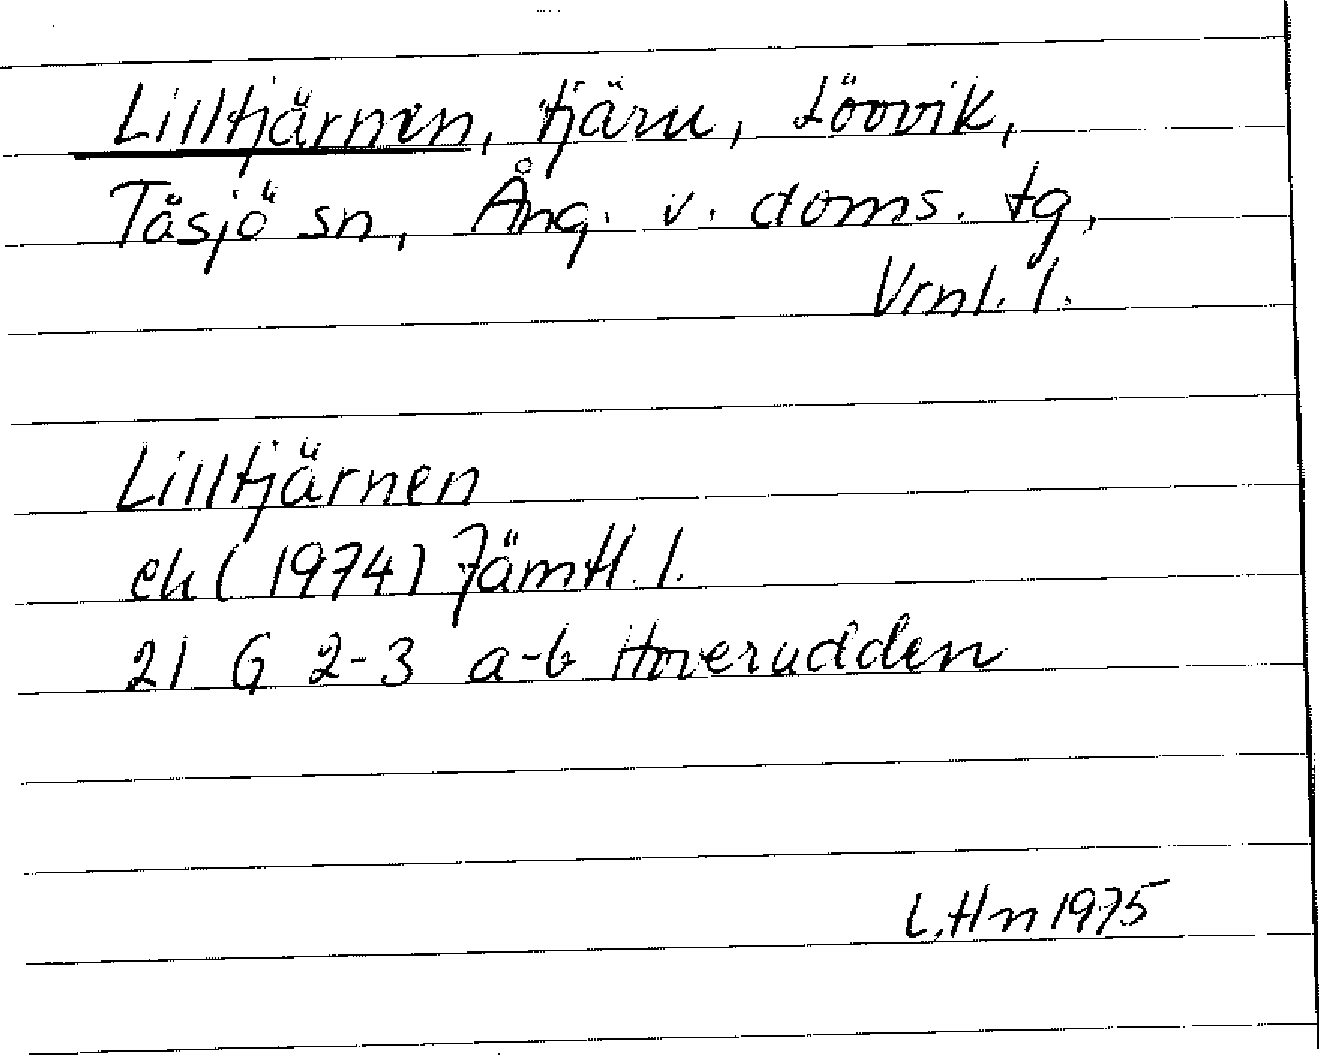 Lilltjärnen, tjärn, Lövvik,
Tåsjö sn, Ång. v. doms. tg,
Vrnl. l.
Lilltjärnen
ek (1974) Jämtl. l.
21 G 2-3 a-b Hoverudden
L.Hn 1975